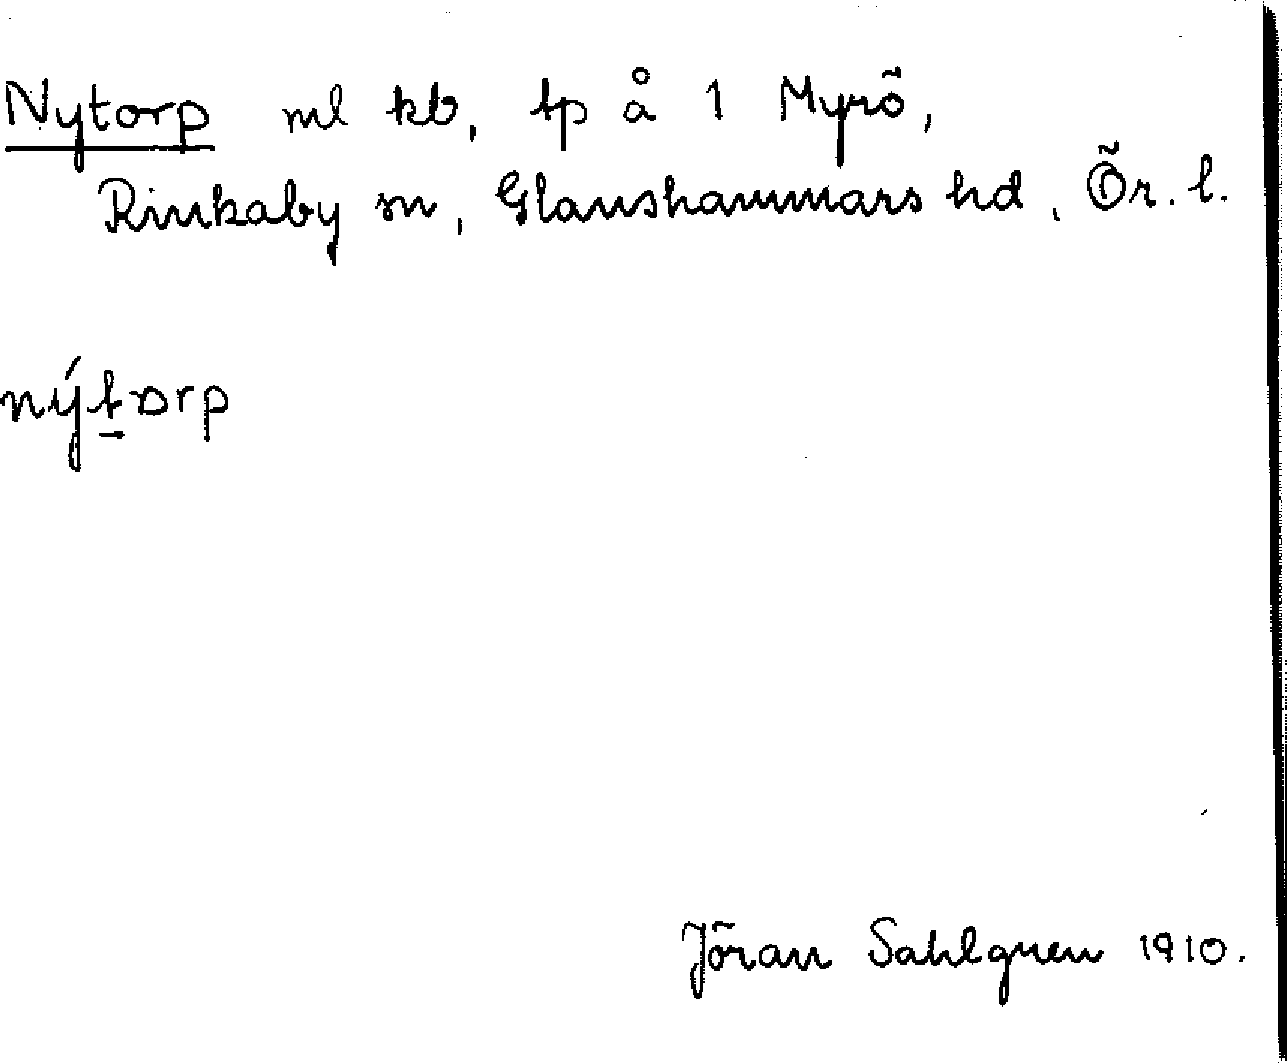 Nytorp ml kb, tp å 1 Myrö,
Rinkaby sn, Glanshammars hd, Ör. l.
nýtorp
Jöran Sahlgren 1910.